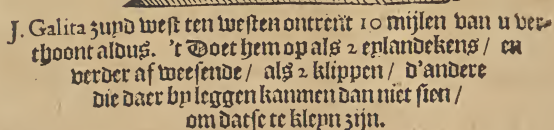 J. Galita zuyd west ten westen ontrent 10 mijlen van u ver-
thoont aldus. 't Doet hem op als 2 eylandekens / en
verder af weesende / als 2 klippen / d'andere
die daer by leggen kanmen dan niet sien /
om datse te kleyn zijn.